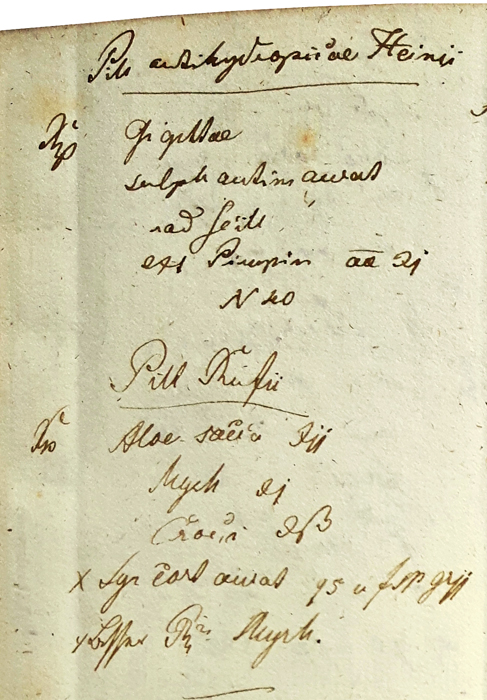 Pill antihydropicae Heinii
Rp Digittae
sulph antim aurat
rad Scill
ext Pimpin aa ℈j
N 40
Pill Rufii
Rp Aloe ʒij
Myrh ʒj
Croci ʒß
x Syr Cort aurat qs u f gr ij
x Myrh.